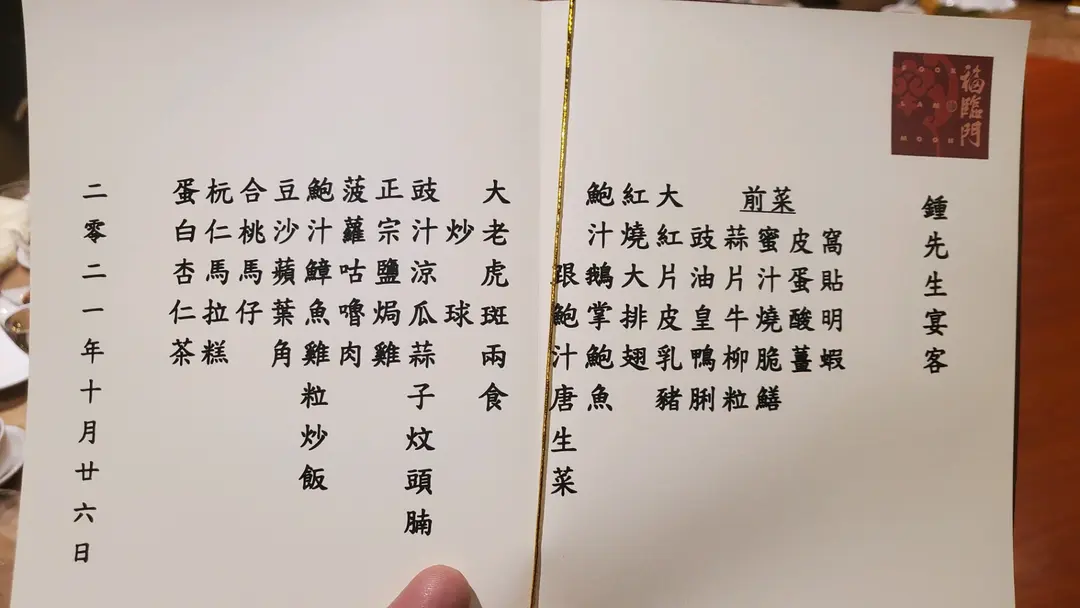 福臨門
FOOK
LAM
MOON
鍾先生宴客
前菜
窩貼明蝦
皮蛋酸薑
蜜汁燒脆鱔
蒜片牛柳粒
豉油皇鴨脷
大紅片皮乳豬
紅燒大排翅
鮑汁鵝掌鮑魚
跟鮑汁唐生菜
大老虎斑兩食
炒球
豉汁涼瓜蒜子炆頭腩
正宗鹽焗雞
菠蘿咕嚕肉
鮑汁鱆魚雞粒炒飯
豆沙蘋葉角
合桃馬仔
杬仁馬拉糕
蛋白杏仁茶
二零二一年十月廿六日